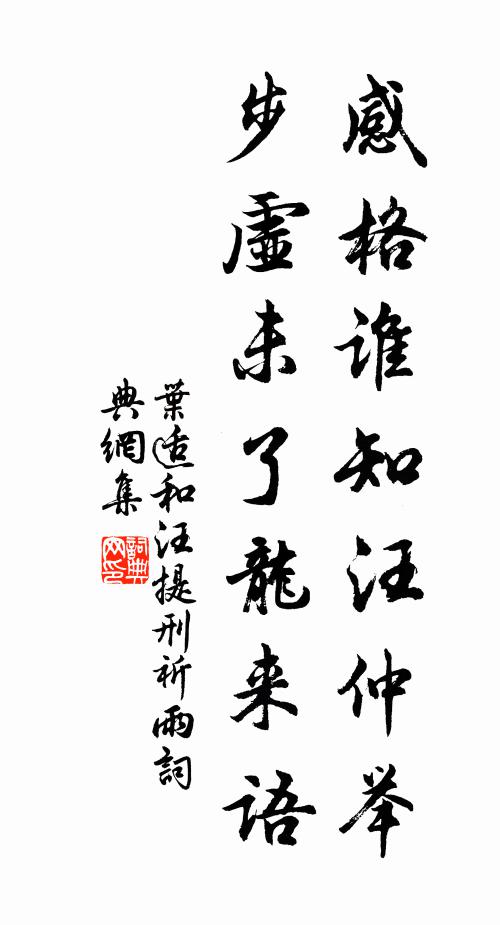 感格谁知汪仲举
步虚未了龍来语
葉适和汪提刑祈雨詞
典網集
詞典
网印